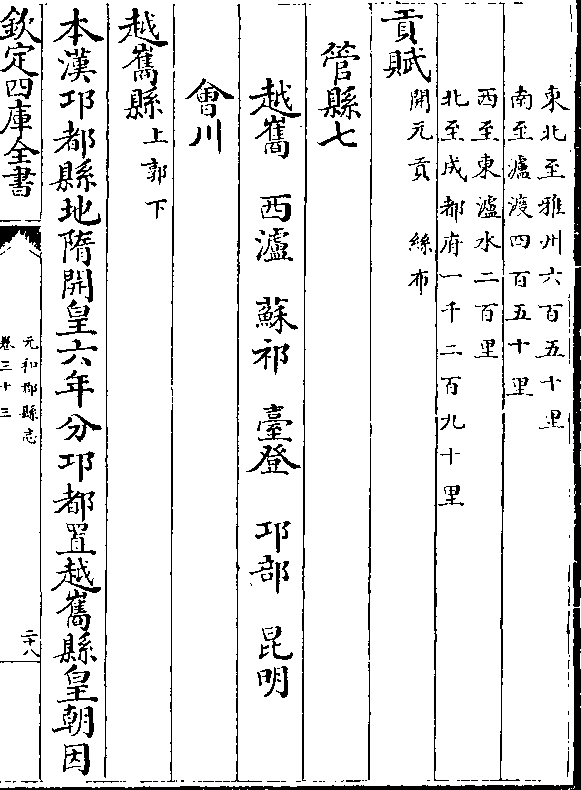 東北至雅州六百五十里
南至瀘渡四百五十里
西至東瀘水二百里
北至成都府一千二百九十里
貢賦
開元貢 絲布
管縣七
越嶲 西瀘 蘇祁 臺登 邛部 昆明
會川
越嶲縣 上 郭下
本漢邛都縣地隋開皇六年分邛都置越嶲縣皇朝因
欽定四庫全書
元和郡縣志
卷三十三
二十八